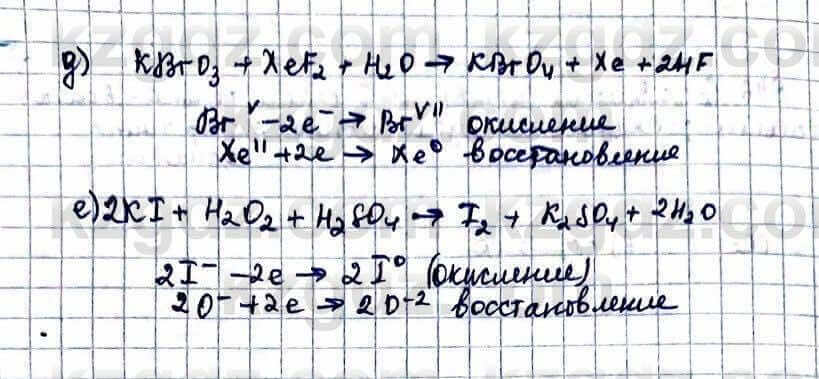 д) KBrO₃ + XeF₂ + H₂O → KBrO₄ + Xe + 2HF
Br^V − 2e⁻ → Br^VII окисление
Xe^II + 2e → Xe⁰ восстановление
е) 2KI + H₂O₂ + H₂SO₄ → I₂ + K₂SO₄ + 2H₂O
2I⁻ − 2e → 2I⁰ (окисление)
2O⁻ + 2e → 2O⁻² восстановление